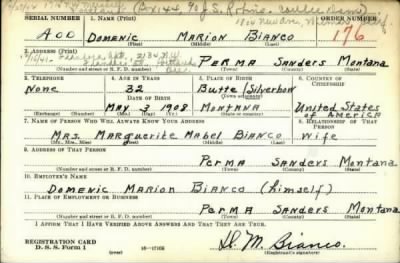 SERIAL NUMBER 1. NAME (Print) ORDER NUMBER
A00 DOMENIC MARION BIANCO 176
(First) (Middle) (Last)
2. ADDRESS (Print)
PERMA SANDERS MONTANA
(Number and street or R. F. D. number) (Town) (County) (State)
3. TELEPHONE 4. AGE IN YEARS 5. PLACE OF BIRTH 6. COUNTRY OF CITIZENSHIP
None 32 Butte/Silverbow
DATE OF BIRTH (Town or county)
MAY 3 1908 MONTANA United States of America
(Mo.) (Day) (Yr.) (State or country)
7. NAME OF PERSON WHO WILL ALWAYS KNOW YOUR ADDRESS 8. RELATIONSHIP OF THAT PERSON
MRS. MARGUERITE MABEL BIANCO WIFE
(Mr., Mrs., Miss) (First) (Middle) (Last)
9. ADDRESS OF THAT PERSON
PERMA SANDERS MONTANA
(Number and street or R. F. D. number) (Town) (County) (State)
10. EMPLOYER'S NAME
DOMENIC MARION BIANCO (himself)
11. PLACE OF EMPLOYMENT OR BUSINESS
PERMA SANDERS MONTANA
(Number and street or R. F. D. number) (Town) (County) (State)
I AFFIRM THAT I HAVE VERIFIED ABOVE ANSWERS AND THAT THEY ARE TRUE.
REGISTRATION CARD
D. S. S. Form 1 16—17105 D. M. Bianco.
(Registrant's signature)